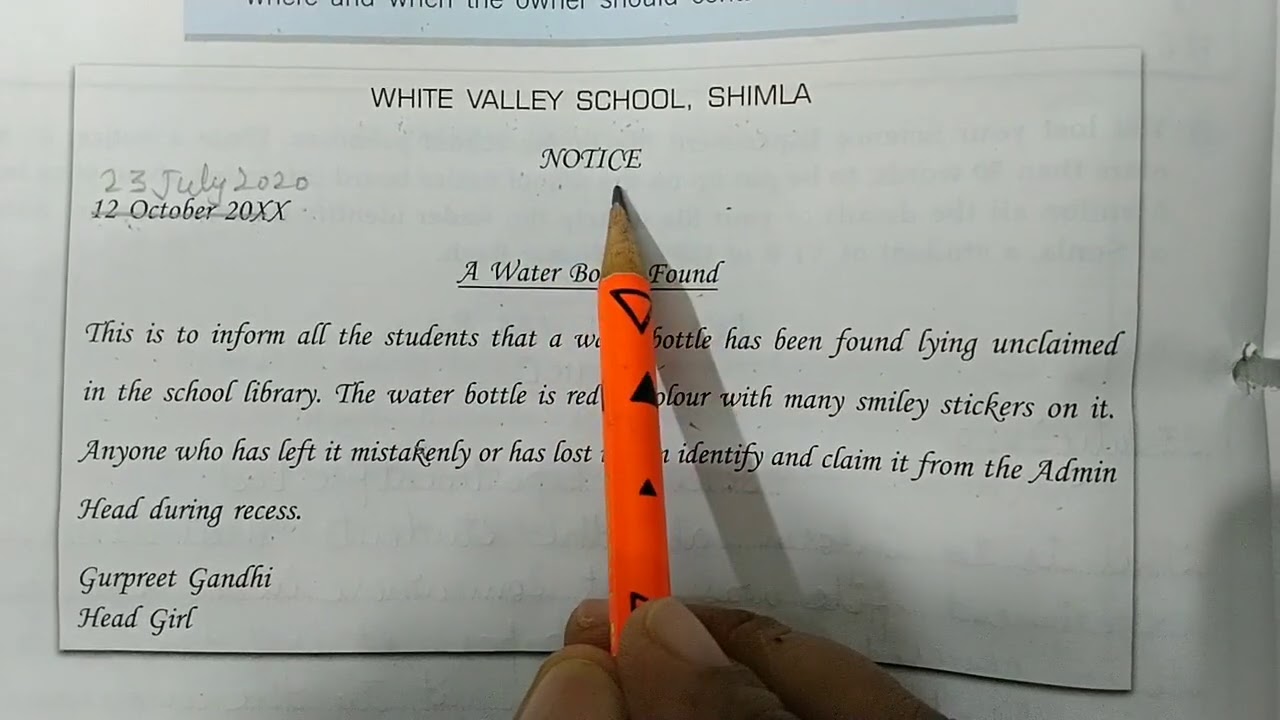 where and when the owner should
WHITE VALLEY SCHOOL, SHIMLA
NOTICE
23 July 2020
12 October 20XX
A Water Bo Found
This is to inform all the students that a wa bottle has been found lying unclaimed
in the school library. The water bottle is red olour with many smiley stickers on it.
Anyone who has left it mistakenly or has lost identify and claim it from the Admin
Head during recess.
Gurpreet Gandhi
Head Girl